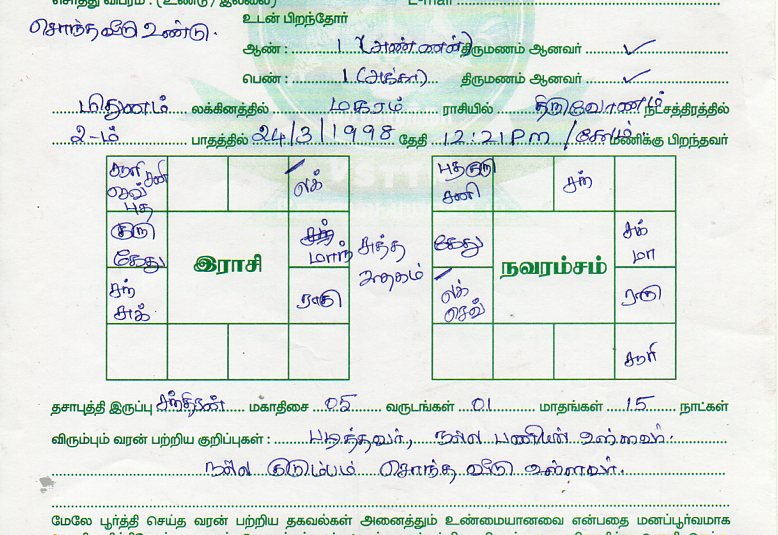 சொத்து விபரம் : (உண்டு / இல்லை) E-mail
சொந்தவீடு உண்டு.
உடன் பிறந்தோர்
ஆண் : 1 (அண்ணன்) திருமணம் ஆனவர் ✓
பெண் : 1 (அக்கா) திருமணம் ஆனவர் ✓
மிதுனம் லக்கினத்தில் மகரம் ராசியில் திருவோணம் நட்சத்திரத்தில்
2-ம் பாதத்தில் 24/3/1998 தேதி 12:21 Pm மணிக்கு பிறந்தவர்
சூரி சனி
செவ்
புத
லக்
குரு
கேது
மாந்
சந்
சுக்
ராகு
இராசி
சுத்த
ஜாதகம்
புத குரு
சனி
சந்
கேது
சுக்
மா
லக்
செவ்
ராகு
சூரி
நவாம்சம்
தசாபுத்தி இருப்பு சந்திரன் மகாதிசை 05 வருடங்கள் 01 மாதங்கள் 15 நாட்கள்
விரும்பும் வரன் பற்றிய குறிப்புகள் : படித்தவர், நல்ல பணியில் உள்ளவர்.
நல்ல குடும்பம் சொந்த வீடு உள்ளவர்.
மேலே பூர்த்தி செய்த வரன் பற்றிய தகவல்கள் அனைத்தும் உண்மையானவை என்பதை மனப்பூர்வமாக